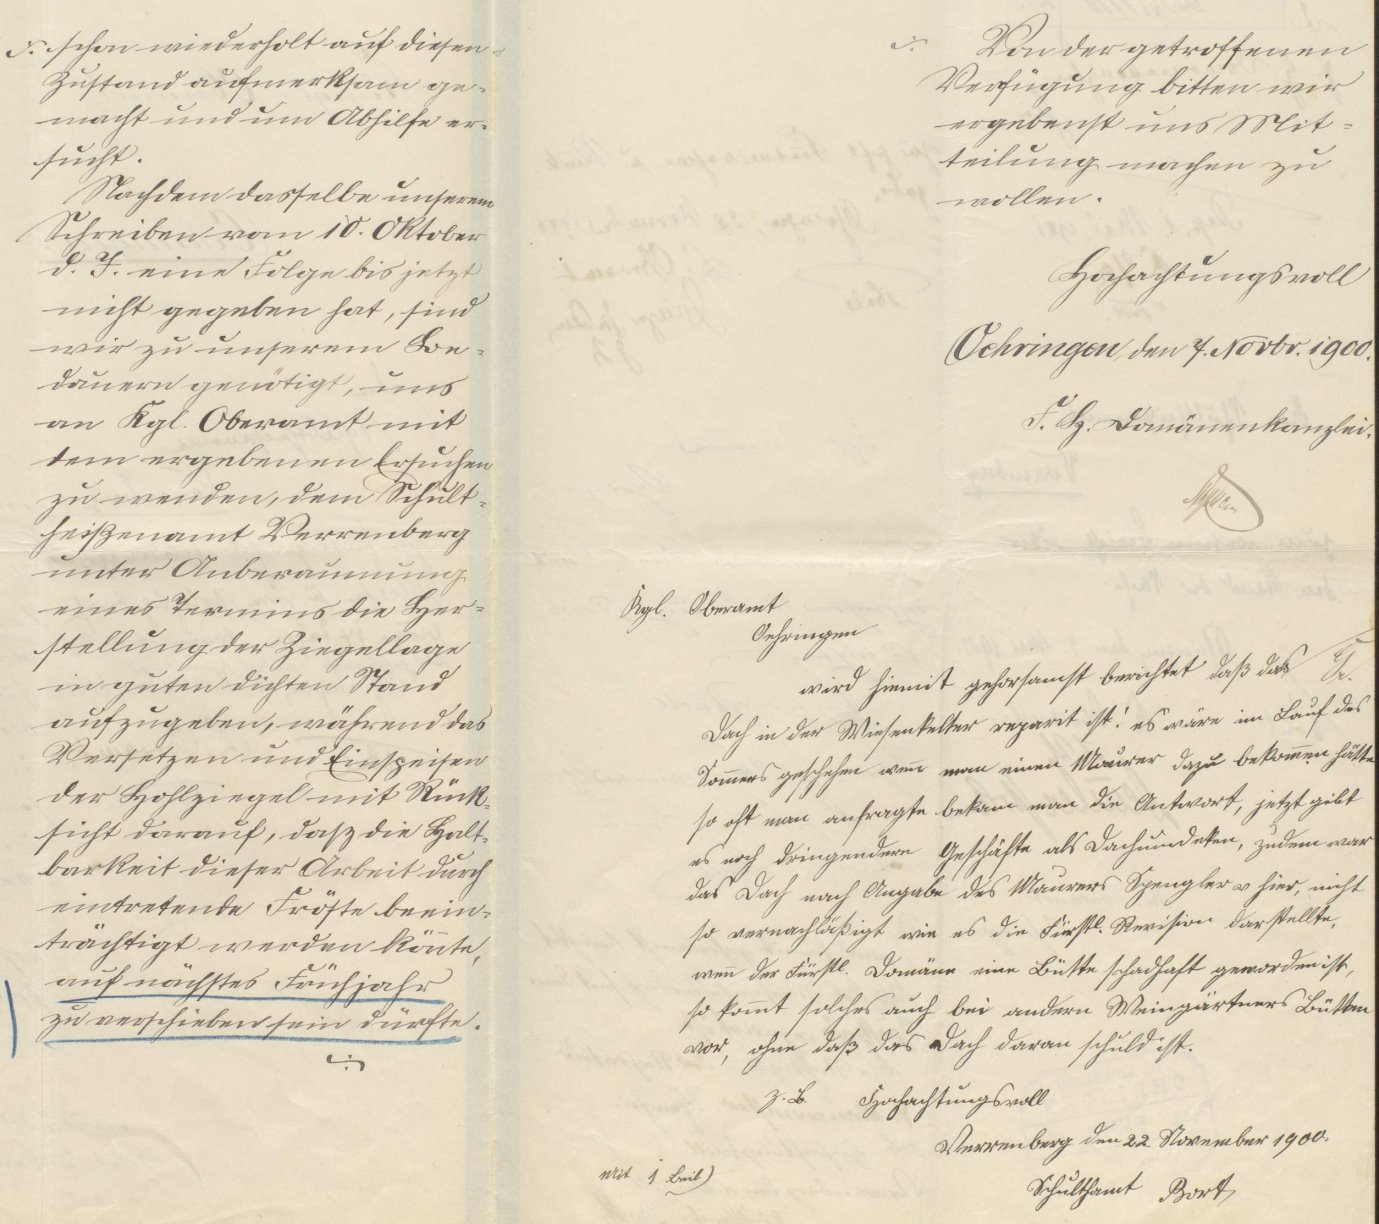 schon wiederholt auf diesen
Zustand aufmerksam ge-
macht und um Abhilfe er-
sucht.
Nachdem dasselbe unserem
Schreiben vom 10. Oktober
d. J. eine Folge bis jetzt
nicht gegeben hat, sind
wir zu unserem Be-
dauern genötigt, uns
an Kgl. Oberamt mit
dem ergebenen Ersuchen
zu wenden, dem Schult-
heißenamt Verrenberg
unter Anberaumung
eines Termins die Her-
stellung der Ziegellage
in guten dichten Stand
aufzugeben, während das
Versetzen und Einspeisen
der Hohlziegel mit Rück-
sicht darauf, dasz die Halt-
barkeit dieser Arbeit durch
eintretende Fröste beein-
trächtigt werden könnte,
auf nächstes Frühjahr
zu verschieben sein dürfte.
Von der getroffenen
Verfügung bitten wir
ergebenst uns Mit-
teilung machen zu
wollen.
Hochachtungsvoll
Oehringen, den 7. Novbr. 1900.
F. H. Domänenkanzlei.
Kgl. Oberamt
Oehringen
wird hiemit gehorsamst berichtet daß das
Dach in der Wiesenkelter reparit ist! es wäre im Lauf des
Sommers geschehen wenn man einen Maurer dazu bekommen hätte
so oft man anfragte bekam man die Antwort, jetzt gibt
es noch dringendere Geschäfte als Dachumdeken, zudem war
das Dach nach Angabe des Maurers Spengler v hier, nicht
so vernachläßigt wie es die Fürstl. Revision darstellte,
wenn der Fürstl. Domäne eine Bütte schadhaft geworden ist,
so kommt solches auch bei andern Weingärtners Bütten
vor, ohne daß das Dach daran schuld ist.
Z. B. Hochachtungsvoll
Verrenberg den 22 November 1900.
Mit 1 Beil)
Schulthamt Bort